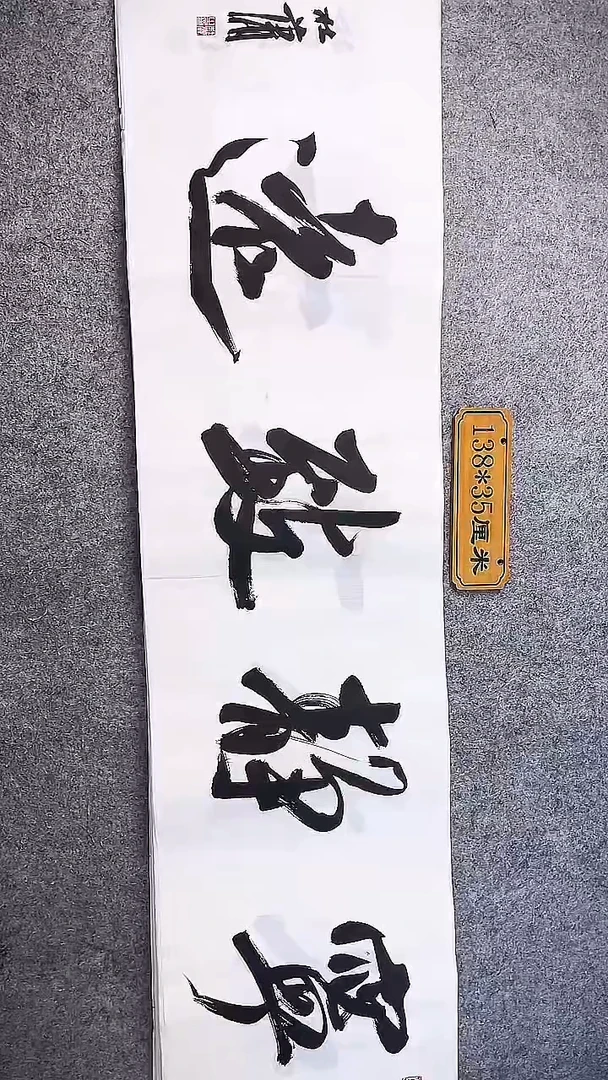 寧静致遠
138*35厘米